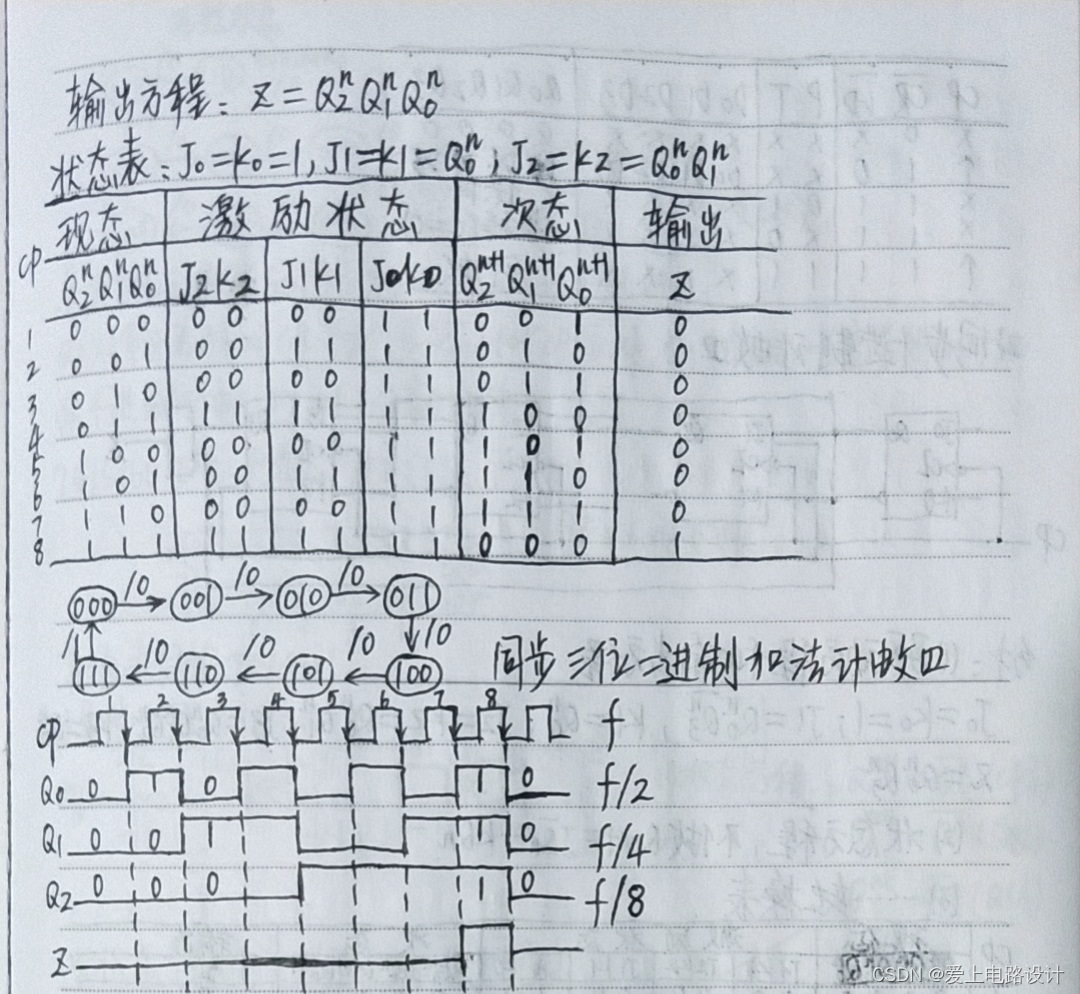 输出方程: Z = Q₂ⁿ Q₁ⁿ Q₀ⁿ
状态表: J₀=K₀=1, J1=K1=Q₀ⁿ, J₂=K₂=Q₀ⁿQ₁ⁿ
现态 激励状态 次态 输出
CP Q₂ⁿ Q₁ⁿ Q₀ⁿ J2 K2 J1 K1 J0 K0 Q₂ⁿ⁺¹ Q₁ⁿ⁺¹ Q₀ⁿ⁺¹ Z
1 0 0 0 0 0 0 0 1 1 0 0 1 0
2 0 0 1 0 0 1 1 1 1 0 1 0 0
3 0 1 0 0 0 0 0 1 1 0 1 1 0
4 0 1 1 1 1 1 1 1 1 1 0 0 0
5 1 0 0 0 0 0 0 1 1 1 0 1 0
6 1 0 1 0 0 1 1 1 1 1 1 0 0
7 1 1 0 0 0 0 0 1 1 1 1 1 0
8 1 1 1 1 1 1 1 1 1 0 0 0 1
000 /0 001 /0 010 /0 011
/1 /0
111 /0 110 /0 101 /0 100
同步三位二进制加法计数口
1 2 3 4 5 6 7 8
CP f
Q₀ 0 1 0 1 0 f/2
Q₁ 0 0 1 1 0 f/4
Q₂ 0 0 0 1 0 f/8
Z
CSDN @爱上电路设计